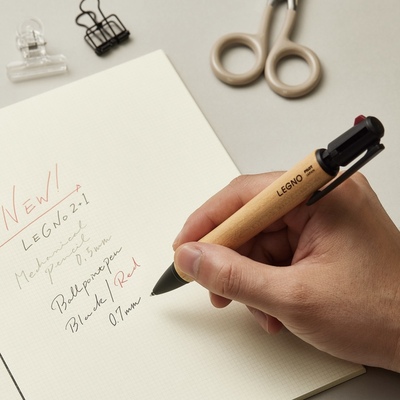 NEW!
LEGNO 2+1
Mechanical
pencil
0.5mm
Ballpoint pen
Black/Red
0.7mm
LEGNO PILOT